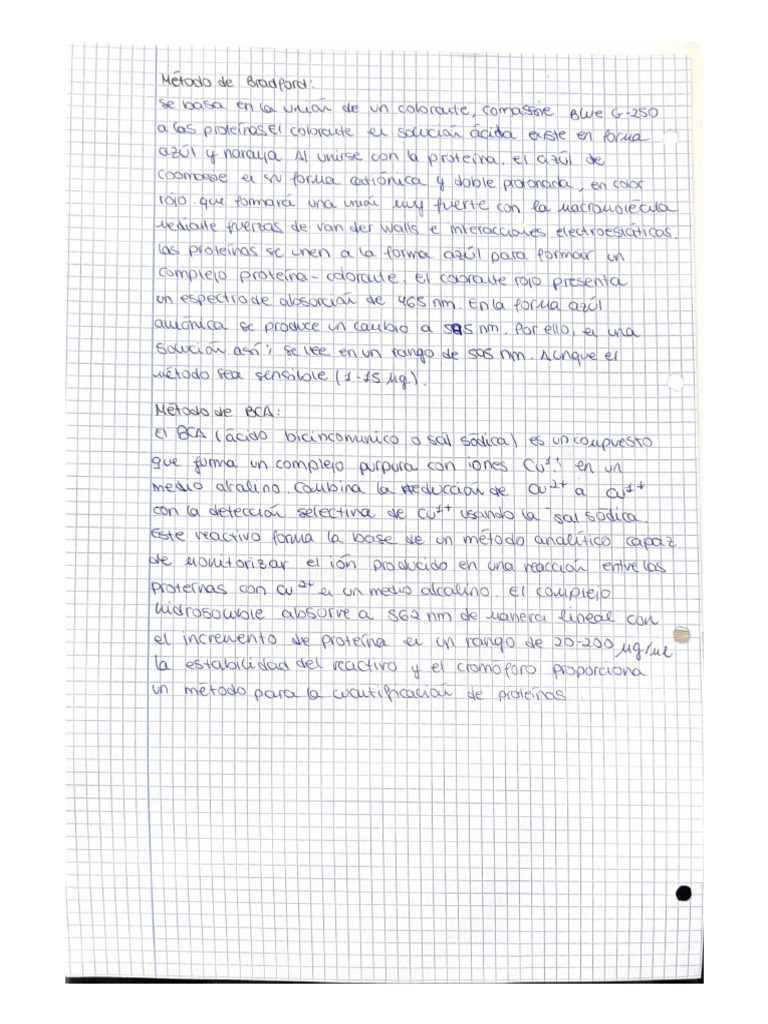 Método de Bradford:
Se basa en la unión de un colorante, comassie Blue G-250
a las proteínas. El colorante en solución ácida existe en forma
azúl y naranja Al unirse con la proteína, el azúl de
coomasse en su forma catiónica y doble protonada, en color
rojo, que formará una unión muy fuerte con la macromolécula
mediante fuerzas de van der walls e interacciones electroestáticas.
Las proteínas se unen a la forma azúl para formar un
complejo proteína - colorante. El colorante rojo presenta
un espectro de absorción de 465 nm. En la forma azúl
aniónica se produce un cambio a 595 nm. Por ello, en una
solución así, se lee en un rango de 595 nm. Aunque el
método sea sensible (1-15 µg).
Método de BCA:
El BCA (ácido bicinconunico o sal sódica) es un compuesto
que forma un complejo purpura con iones Cu¹⁺ en un
medio alcalino. Combina la reducción de Cu²⁺ a Cu¹⁺
con la detección selectiva de Cu¹⁺ usando la sal sódica.
Este reactivo forma la base de un método analítico capaz
de monitorizar el ión producido en una reacción entre las
proteínas con Cu²⁺ en un medio alcalino. El complejo
hidrosoluble absorve a 562 nm de manera lineal con
el incremento de proteína en un rango de 20-200 µg/ml
la estabilidad del reactivo y el cromóforo proporciona
un método para la cuantificación de proteínas